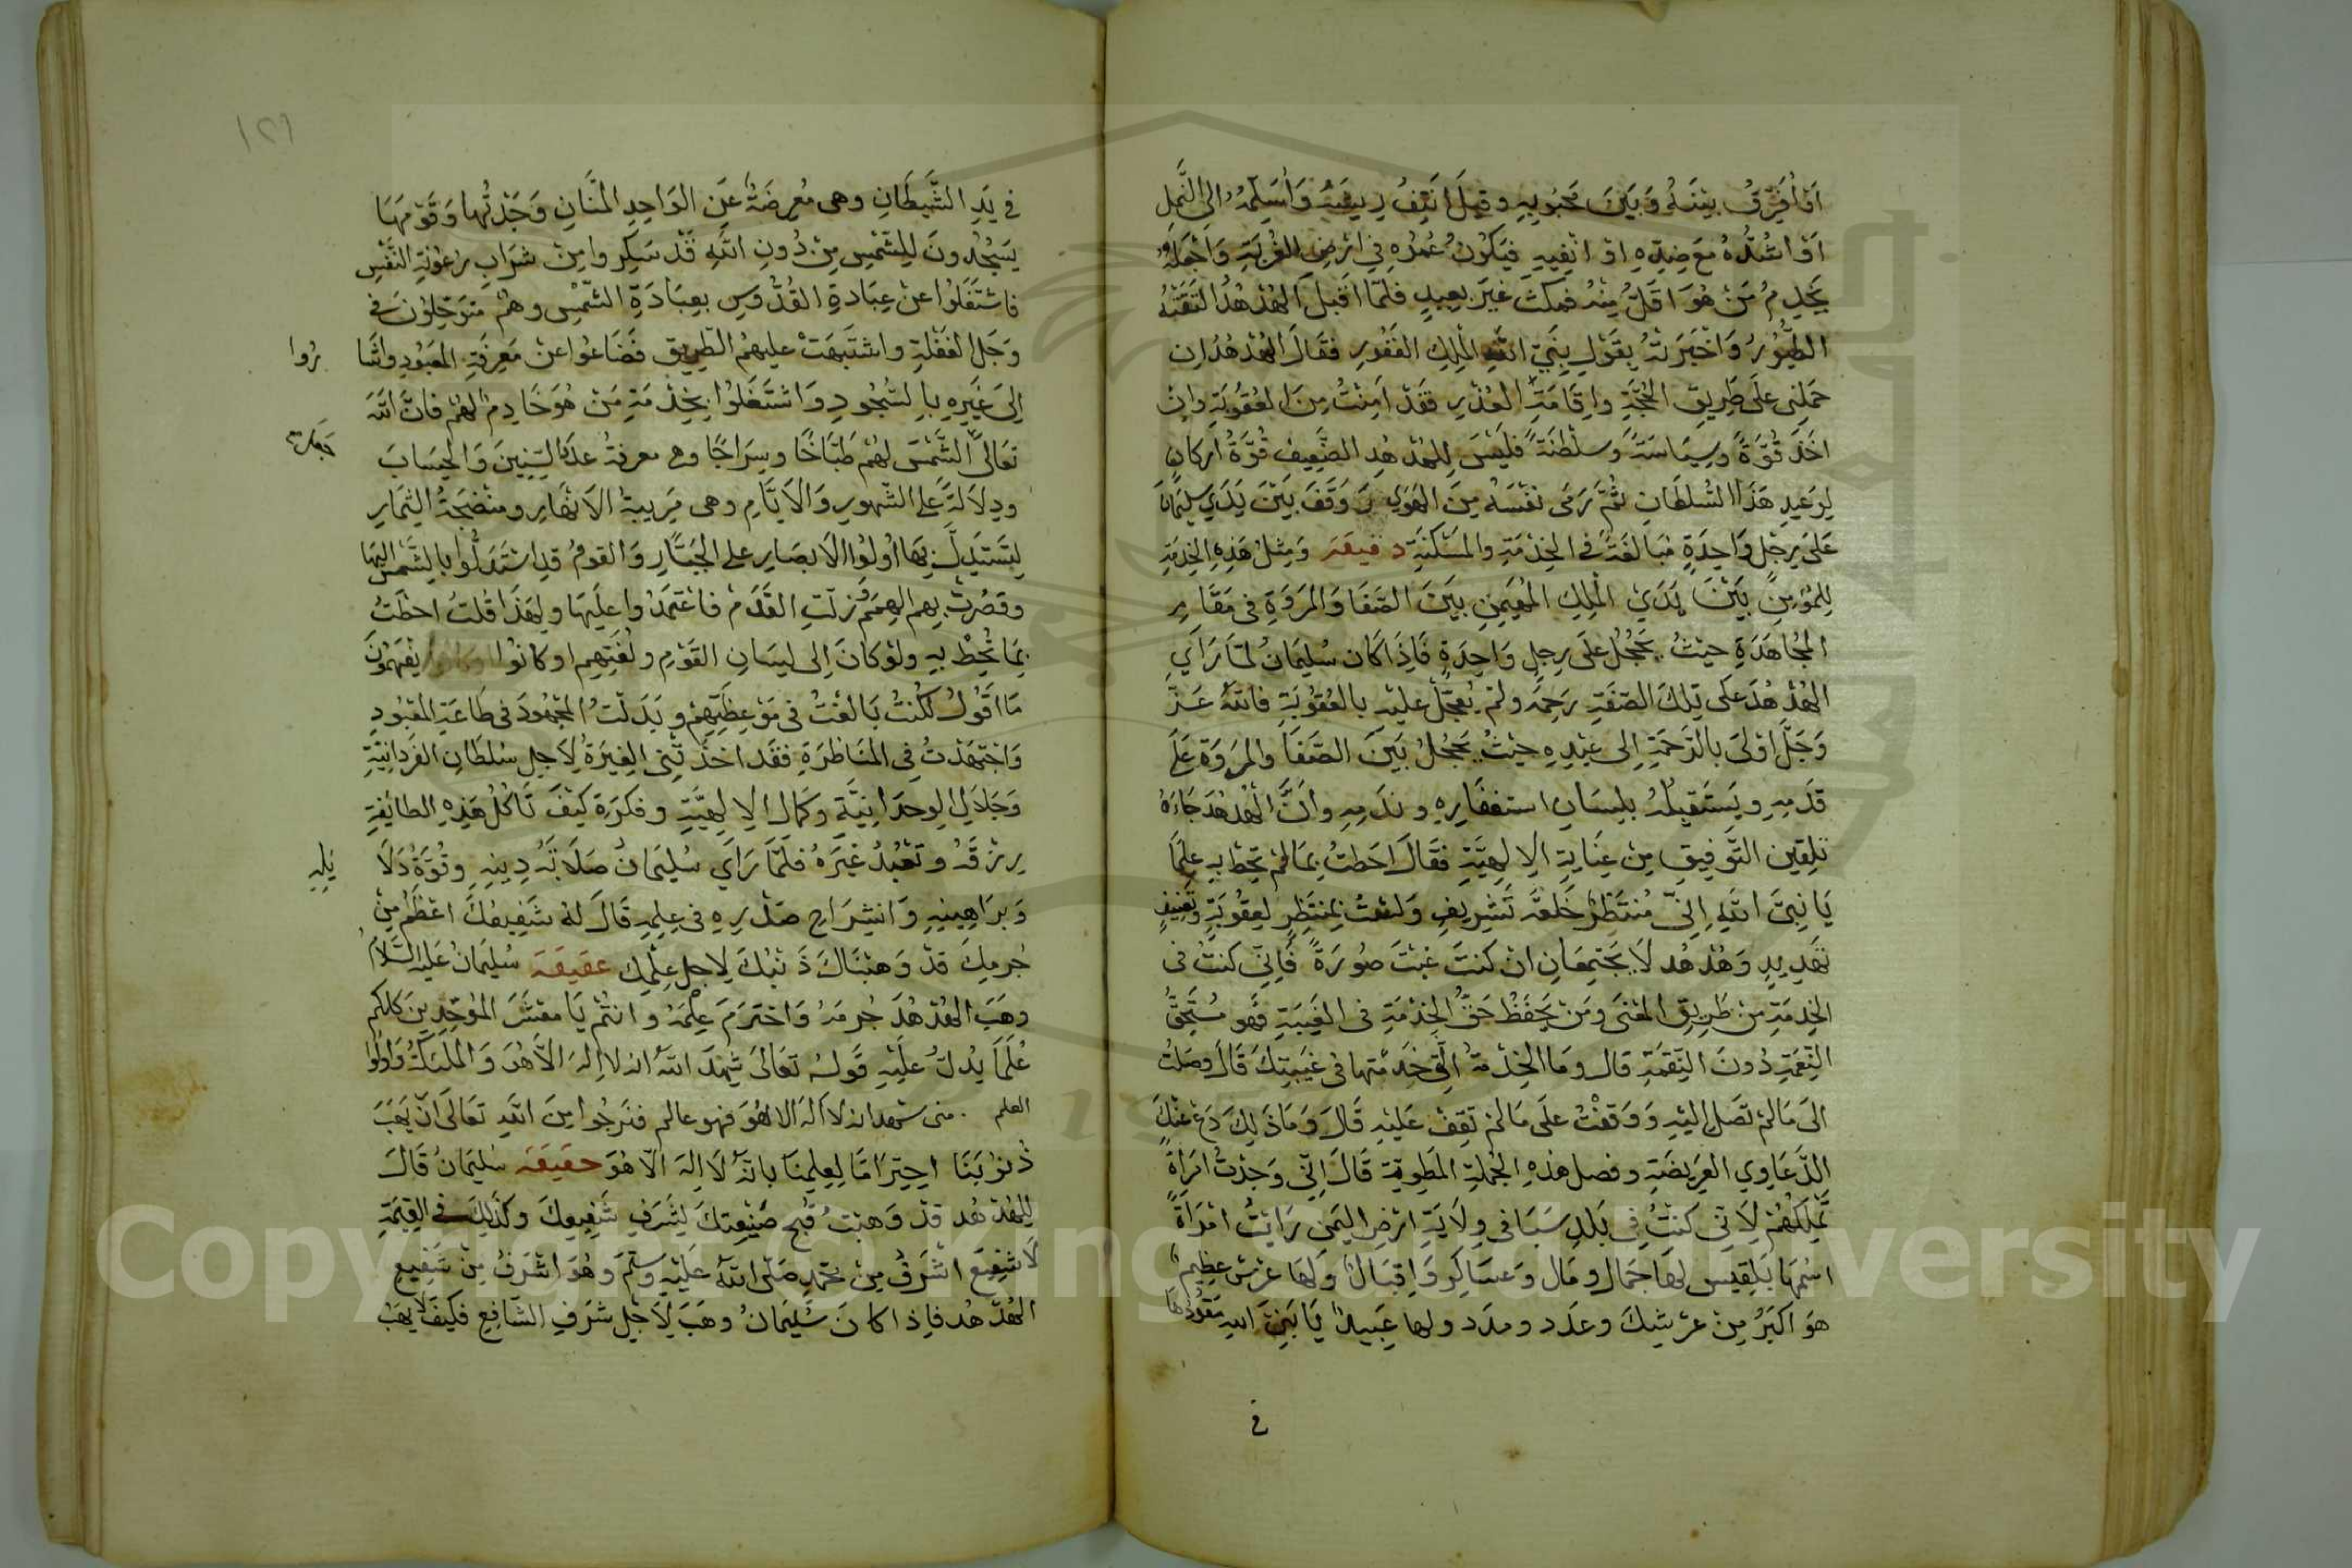 اَوْ اُفَرِّقُ بَيْنَهُ وَبَيْنَ مَحْبُوبِهِ وقيلَ انتِفُ رِيشَهُ وَأُسَلِّمُهُ اِلَى النَّمِل
اَوْ اشُدُّهُ مَعَ ضِدِّهِ اوْ انْفِيهِ فيَكُونُ عُمْرُهِ فِي ارْضِ الغُرْبَةِ وَاجْعَلهُ
يَخْدِمُ مَنْ هُوَ اَقَلُّ مِنْهُ فمكثَ غَيرَ بعيدٍ فلمَّا اَقْبَلَ الهُدْهُدُ التَقَتْهُ
الطيُورُ وَاخْبَرَتْهُ بِقَوْلِ نَبِيِّ اللهِ المَلِكِ الغَفُورِ فقَالَ الهُدْهُدُ اِن
حَمَلنِي علَى طَرِيقِ الحُجَّةِ واِقَامَةِ العُذْرِ فقَدْ اَمِنْتُ مِنَ العُقُوبَةِ واِنْ
اخَذَ قُوَّةً وسِيَاسَةً وَسلْطَنَةً فليْسَ لِلهُدْهُدِ الضَّعِيفِ قُوَّةُ اَركانٍ
لِوَعِيدِ هَذَا السُّلطَانِ ثُمَّ رَمَى نَفْسَهُ مِنَ الهَوَى وَوَقَفَ بَيْنَ يَدَي سليمَانَ
عَلَى رِجْلٍ وَاحِدَةٍ مُبَالَغَةً فى الخِدْمَةِ والمَسْكَنَةِ دقيقة وَمِثلُ هَذِهِ الخِدْمَةِ
لِلمُؤمِنِ بَيْنَ يَدَيِ المَلِكِ المُهَيمِنِ بَيْنَ الصَّفَا وَالمَرْوَةِ فى مَقَامِ
المُجَاهَدَةِ حيْثُ يَحْجُلُ علَى رِجلٍ وَاحِدَةٍ فَاِذَا كَان سُليمَانُ لمَّا رَاَي
الهُدْهُدَ على تِلكَ الصّفَةِ رَحِمَهُ ولَمْ يُعَجِّلْ عليْهِ بالعُقُوبَةِ فاللهُ عَزَّ
وَجَلَّ اوْلىَ بالرَّحمَةِ اِلى عَبْدِهِ حيْثُ يَحْجُلُ بَيْنَ الصَّفَا والمَروَةِ عَلَى
قدَمِهِ ويَستَقِيلُهُ بلِسَانِ استغفَارِهِ ونَدَمِهِ وانَّ الهُدْهُدَ جَاءَهُ
تَلقِينُ التَّوفِيقِ مِنْ عِنَايَةِ الاِلهِيَّةِ فقَالَ احَطتُ بمَا لَمْ تُحِطْ بهِ عِلمًا
يَا نَبِيَّ اللهِ اِنّى مُنتَظِرُ خَلعَةِ تَشْرِيفٍ وَلسْتُ بمُنتَظِرٍ لِعُقُوبَةٍ وتَعْنِيفٍ
تَهْدِيدٍ وَهُدْهُد لاَ يَجْتِمِعَانِ انْ كنتَ غبْتَ صُورَةً فَاِنّى كنتُ فى
الخِدمَةِ مِنْ طَرِيقِ المَعْنَى ومَنْ يَحفَظْ حَقَّ الخِدْمَةِ فى الغَيبَةِ فهُو مُسْتَحِقُّ
النِّعْمَةِ دُونَ النِّقمَةِ قال وَمَا الخِدْمَةُ الَّتِي خَدَمْتَها فى غَيبَتِكَ قَالَ وصَلتُ
الىَ مَا لَمْ تَصَل اليْهِ وَوَقَفْتُ علَى مَا لَمْ تَقِفْ عَليْهِ قَالَ وَمَاذَ لِكَ دَعْ عنْكَ
الدَّعَاوِي العَرِيضَةِ وفصل هذِهِ الجُملةِ المَطوِيَّةِ قَالَ اِنِّى وَجَدْتُ امرَاةً
تَملِكُهُمْ لاَنِّى كنتُ فِي بَلَدِ سَبَا فى وِلاَيَةِ ارْضِ اليَمَن رَايْتُ امْرَاَةً
اسْمُهَا بَلقِيس لهَا جَمَال ومَال وَعَسَاكِر وَاِقبَال وَلهَا عَرْش عظِيم
هوَ اكبَرُ مِنْ عرْشِكَ وعدَد ومدَد ولها عَبِيد يَا نَبِيَّ اللهِ مَقُودُهَا
فى
١٢٦
فِي يَدِ الشَّيطَانِ وهى مُعرِضَةٌ عَنِ الوَاحِدِ المَنَّانِ وَجَدْتُها وَقَوْمَهَا
يَسْجُدُونَ لِلشّمْسِ مِنْ دُونِ اللهِ قَدْ سَكِروا مِنْ شَرَابِ رُعُونَةِ النَّفْسِ
فاشتَغَلوْا عنْ عِبَادةِ القُدُّوسِ بعِبَادَةِ الشّمْسِ وهُمْ متَوَحِّلوْنَ فى
وَحَل الغفْلةِ واشتَبَهَتْ عليهِمُ الطّرِيق فَضَاعُوا عنْ مَعرِفَةِ المَعبُودِ واشَا رُوا
اِلىَ غَيرِهِ بالسُّجُودِ وَاشتَغَلوْا بخِدْمَةِ مَنْ هُوَ خَادِمٌ لهُمْ فانَّ اللهَ
تَعَالىَ الشَّمْسَ لهُمْ طَبَّاخًا وسِرَاجًا وهى معرفةُ عدَد السِّنِينَ وَالحِسَابَ
ودِلاَلةً علَى الشّهورِ وَالاَيَّامِ وهى مُرَبِّيَةُ الاَنْهَارِ ومنْضِجَةُ الثِّمَارِ
لِيَستَدِلَّ بِهَا اُولوُا الاَبصَارِ على الجَبَّارِ وَالقومُ قدِ اسْتَدَلُّوا بالشَّمْسِ اليهَا
وقصُرَتْ بِهِم الهِمَمُ وزلّتِ القَدَمْ فاعْتَمَدُوا علَيهَا ولِهَذَا قلتُ احطَتُ
بمَا لمْ تُحِطْ بِهِ ولوْ كانَ اِلى لِسَانِ القَوْمِ ولُغَتِهِم او كانوُا يَفْهَمُونَ
مَا اَقُولُ لكُنْتُ بَالَغْتُ فى مَوْعِظَتِهِمْ وبَذَلتُ المَجْهُودَ فى طَاعَةِ المَعْبُودِ
وَاجْتَهَدْتُ فِى المُنَاظرَةِ فقَد اخذَتْنِى الغِيَرةُ لاَجِلِ سُلطَانِ الفَرْدَانِيَّةِ
وَجَلاَلِ الوحدَانِيَّةِ وكَمَال الاِلهِيَّةِ وفكرَة كيْفَ تَاكُلُ هَذِهِ الطائِفةِ
رِزقَهُ وتَعْبُدُ غيْرَهُ فلمَّا رَاَى سُليمَانُ صَلاَبَةَ دِينِهِ وقُوَّةَ دَلاَ ئِلِهِ
وَبرَاهِينِهِ وَانشِرَاحِ صَدْرِهِ فى عِلمِهِ قَالَ لهُ شَفِيعُكَ اعْظَمُ مِنْ
جُرمِكَ قدْ وَهبْنَاكَ ذَنْبَكَ لاِجلِ عِلْمِكَ عقيقة سُليمَانُ عَليْهِ السَّلاَمُ
وهَبَ الهُدْهُدَ جُرمَهُ وَاحتَرَمَ عِلْمَهُ وَانتُمْ يَا معْشَرَ المُوَحِّدِينَ كلكم
عُلَمَا يُدلّ عليْهِ قَولهُ تَعَالىَ شَهِدَ اللهُ انه لا اِلهَ الاّ هُوَ وَالمَلئكَةُ وَاولُوا
العلم . منى شهد انه لا اله الا هُوَ فهو عالم فنرجُوا مِنَ اللهِ تَعَالىَ انْ يَهَبَ
ذُنُوبَنَا احِتِرَامًا لِعِلمِنَا بانّهُ لاَ اِلهَ الاّ هُوَ حقيقة سُليَمانُ قَالَ
لِلهُدْهُد قدْ وَهَبْتُ قُبْحَ صَنِيعتِكَ لِشَرَفِ شَفِيعِكَ وكَذَلِكَ فى القِيمَةِ
لاَ شَفِيعَ اشْرَفُ مِنْ مُحَمّدٍ صَلّى اللهُ عَليْهِ وَسَلّمَ وهُوَ اشْرَفُ مِنْ شَفِيعِ
الهُدْهُد فاِذا كانَ سُليْمَانُ وهَبَ لِاَجْلِ شرَفِ الشّافِعِ فكيْفَ لاَ يهَبُ
Copyright © King Saud University